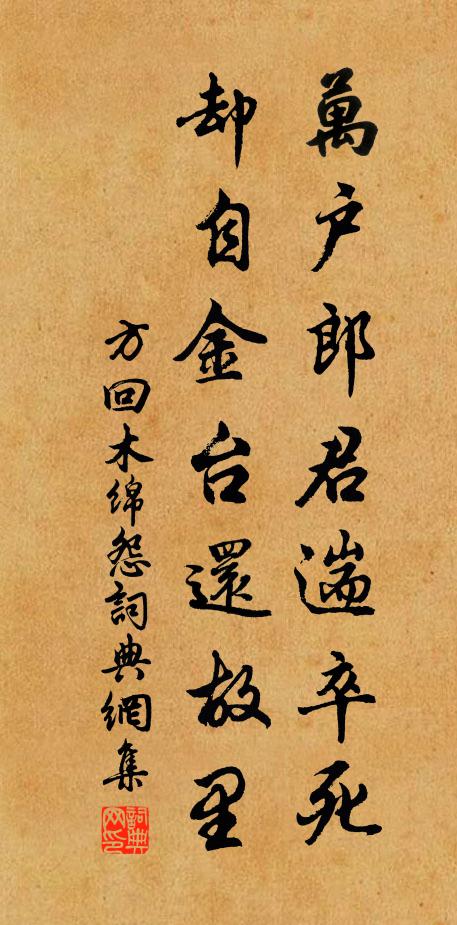 萬户郎君遄卒死
却自金台還故里
方回木绵怨詞典網集
詞典网印